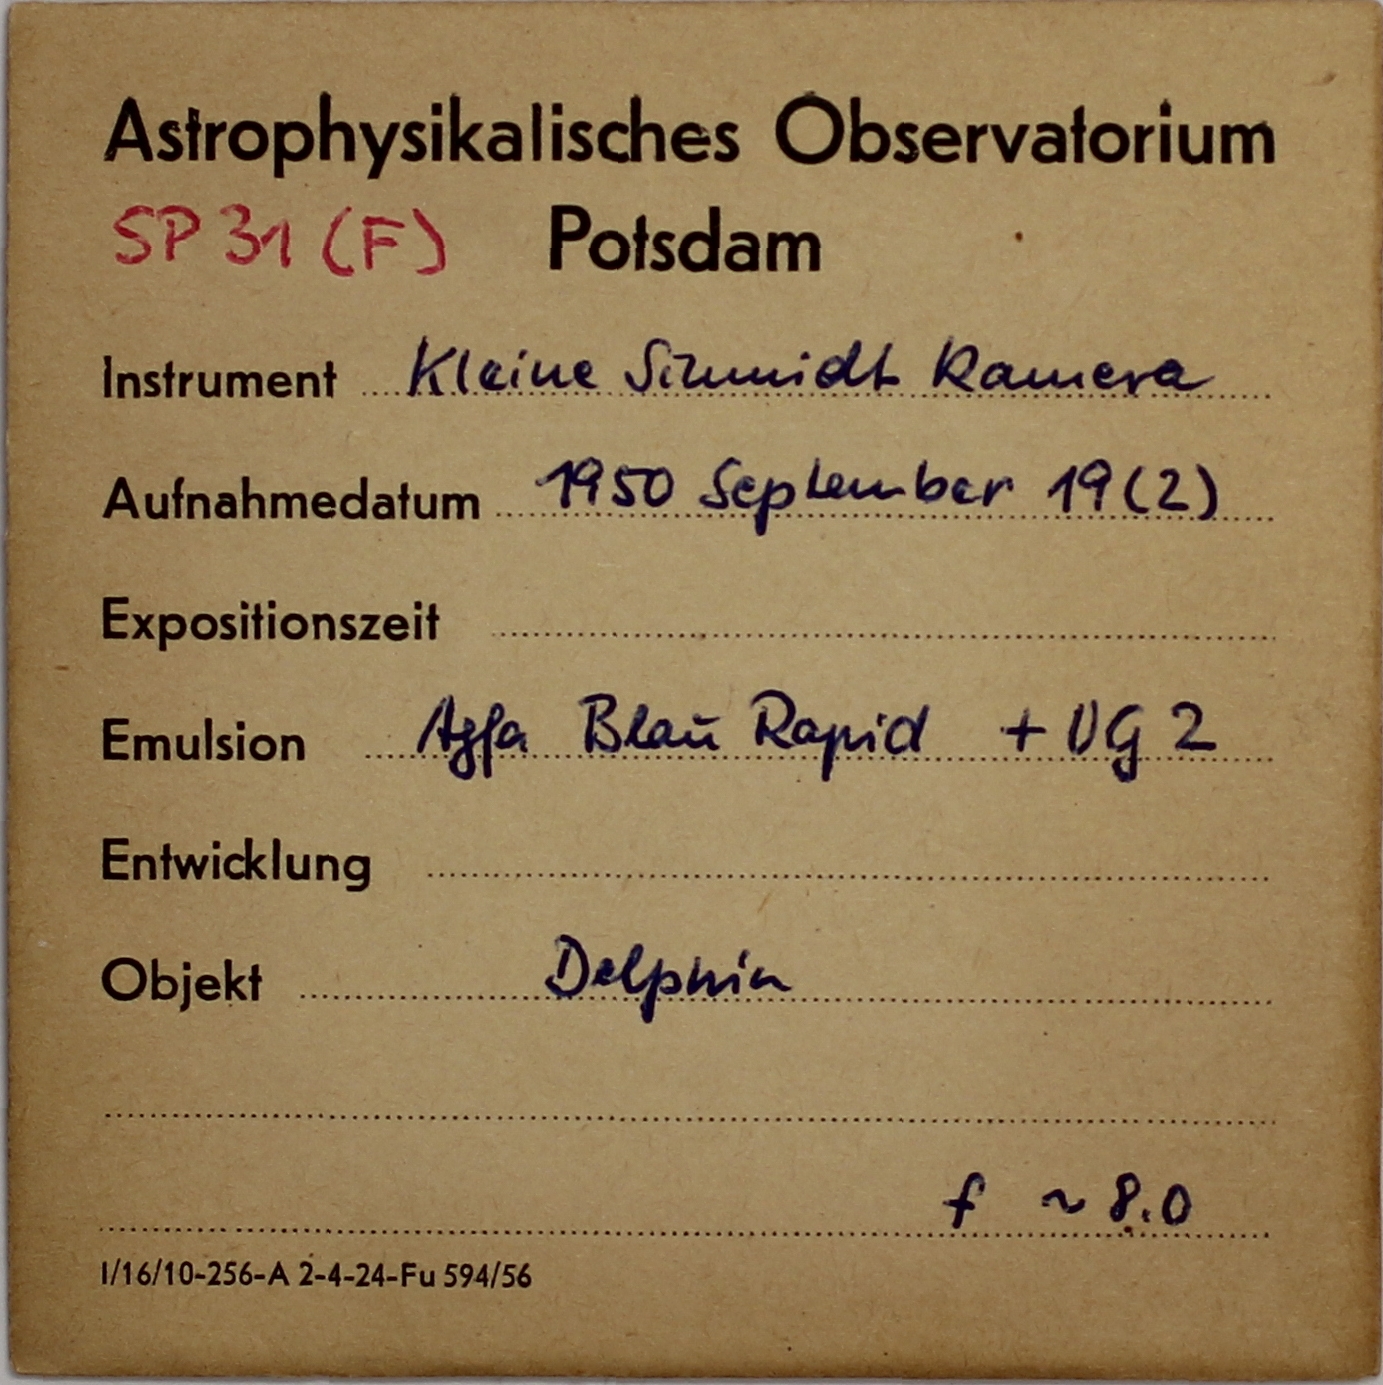 Astrophysikalisches Observatorium
SP 31 (F) Potsdam
Instrument Kleine Schmidt Kamera
Aufnahmedatum 1950 September 19 (2)
Expositionszeit
Emulsion Agfa Blau Rapid + UG 2
Entwicklung
Objekt Delphin
f ~ 8.0
I/16/10-256-A 2-4-24-Fu 594/56